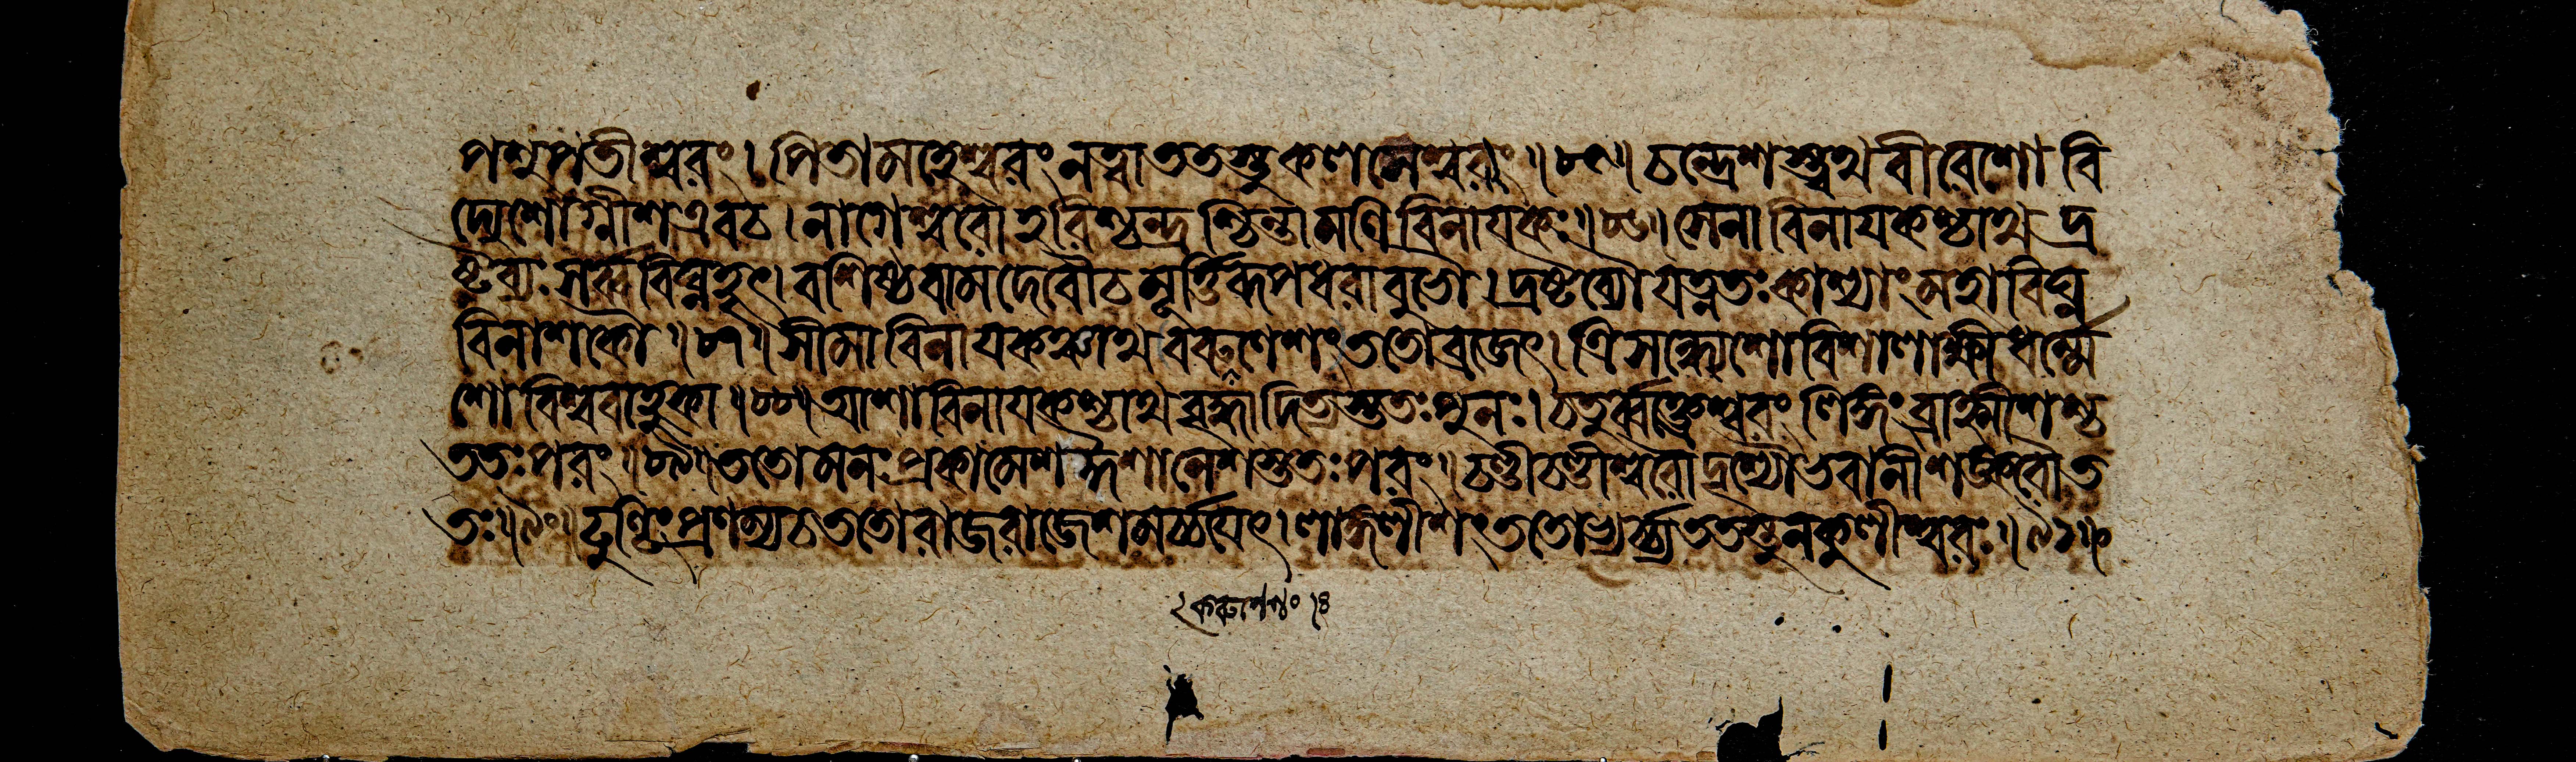 পশুপতীশ্বরং। পিতামহেশ্বরং নত্বা ততস্তু কলসেশ্বরং॥৮৫॥ চন্দ্রেশস্ত্বথ বীরেশো বি
দ্যেশোগ্নীশ এব চ। নাগেশ্বরো হরিশ্চন্দ্রশ্চিন্তামণিবিনায়কঃ॥৮৬॥ সেনাবিনায়কশ্চাথ দ্র
ষ্টব্যঃ সর্ব্ববিঘ্নহৃৎ। বশিষ্ঠবামদেবৌ চ মূর্ত্তিরূপধরাবুভৌ। দ্রষ্টব্যৌ যত্নতঃ কাশ্যাং মহাবিঘ্ন
বিনাশকৌ॥৮৭॥ সীমাবিনায়কঞ্চাথ বরুণেশং ততো ব্রজেৎ। ত্রিসন্ধ্যেশো বিশালাক্ষী ধর্ম্মে
শো বিশ্ববাহুকা॥৮৮॥ আশাবিনায়কশ্চাথ বৃদ্ধাদিত্যস্ততঃ পুনঃ। চতুর্ব্বক্ত্রেশ্বরং লিঙ্গং ব্রাহ্মীশশ্চ
ততঃ পরং॥৮৯॥ ততো মনঃপ্রকামেশ ঈশানেশস্ততঃ পরং। চণ্ডীচণ্ডীশ্বরৌ দৃশ্যৌ ভবানীশঙ্করৌ ত
তঃ॥৯০॥ ঢুণ্ঢিং প্রণম্য চ ততো রাজরাজেশমর্চ্চয়েৎ। লাঙ্গলীশং ততোভ্যর্চ্চ্য ততস্তু নকুলীশ্বরঃ॥৯১॥